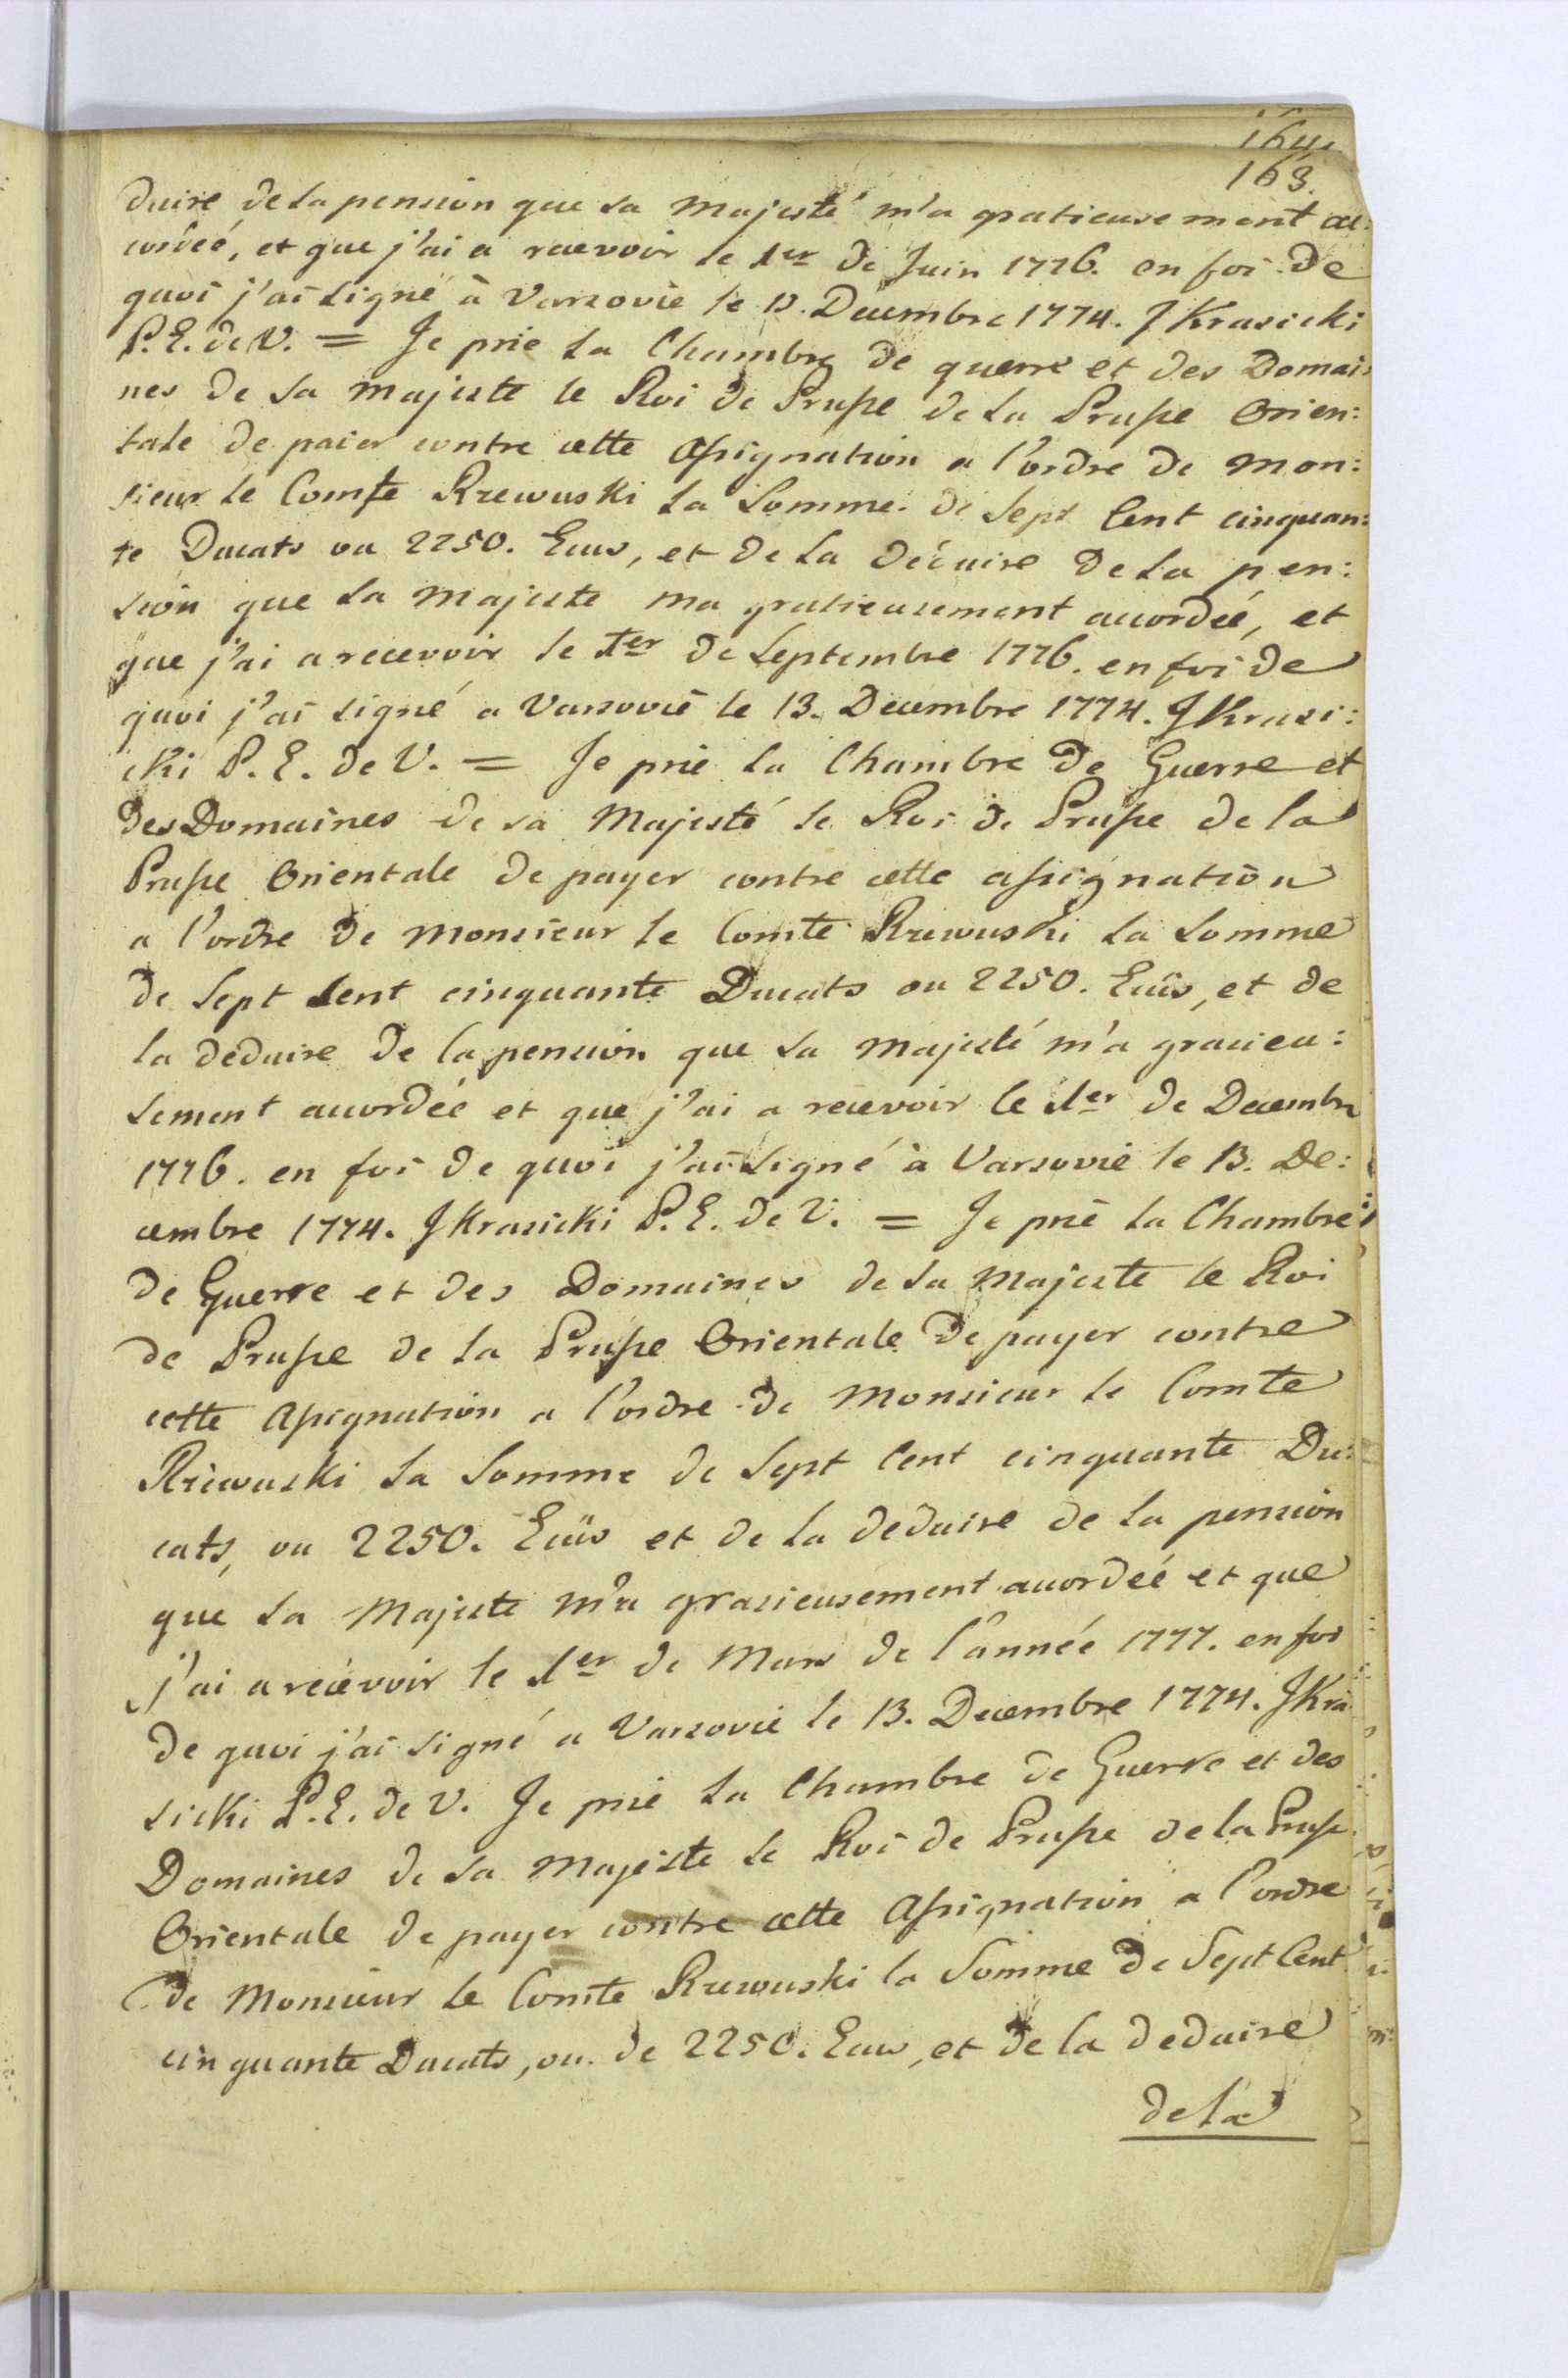 164.
163.
duire de la pension que sa Majesté m'a gratieusement ac:
cordeé, et que j'ai a recevoir le 1er de Juin 1776. en foi de
quoi j'ai signé à Varsovie le 13. Decembre 1774. J Krasicki
P. E. de V. = Je prie la Chambre de guerre et des Domai:
nes de Sa Majeste le Roi de Prusse de la Prusse Orien:
tale de païer contre cette Assignation a l'ordre de Mon:
sieur le Comte Rzewuski la Somme de Sept Cent cinquan:
te Ducats ou 2250. Ecus, et de la deduire de la pen:
sion que Sa Majeste ma gratieusement accordeé, et
que j'ai a recevoir le 1er de Septembre 1776. en foi de
quoi j'ai signé a Varsovie le 13. Decembre 1774. J Krasi:
cki P. E. de V. = Je prie la Chambre de Guerre et
des Domaines de sa Majesté le Roi de Prusse de la
Prusse Orientale de payer contre cette assignation
a l'ordre de Monsieur le Comte Rzewuski la Somme
de Sept Cent cinquante Ducats ou 2250. Ecûs, et de
la deduire de la pension que Sa Majesté m'a gracieu:
sement accordeé et que j'ai a recevoir le 1er de Decembre
1776. en foi de quoi j'ai signé à Varsovie le 13. De:
cembre 1774. J Krasicki P. E. de V. = Je prie la Chambre
de Guerre et des Domaines de Sa Majeste le Roi
de Prusse de la Prusse Orientale de payer contre
cette Assignation a l'ordre de Monsieur le Comte
Rzewuski la Somme de Sept Cent cinquante Du:
cats, ou 2250. Ecüs et de la deduire de la pension
que Sa Majeste m'a grasieusement accordeé et que
j'ai a recevoir le 1er de Mars de l'année 1777. en foi
de quoi j'ai signé a Varsovie le 13. Decembre 1774. J Kra
sicki P. E. de V. Je prie la Chambre de Guerre et des
Domaines de Sa Majeste le Roi de Prusse de la Prusse
Orientale de payer contre cette Assignation a l'ordre
de Monsieur le Comte Rzewuski la Somme de Sept Cent
cinquante Ducats, ou de 2250. Ecus, et de la deduire
de la